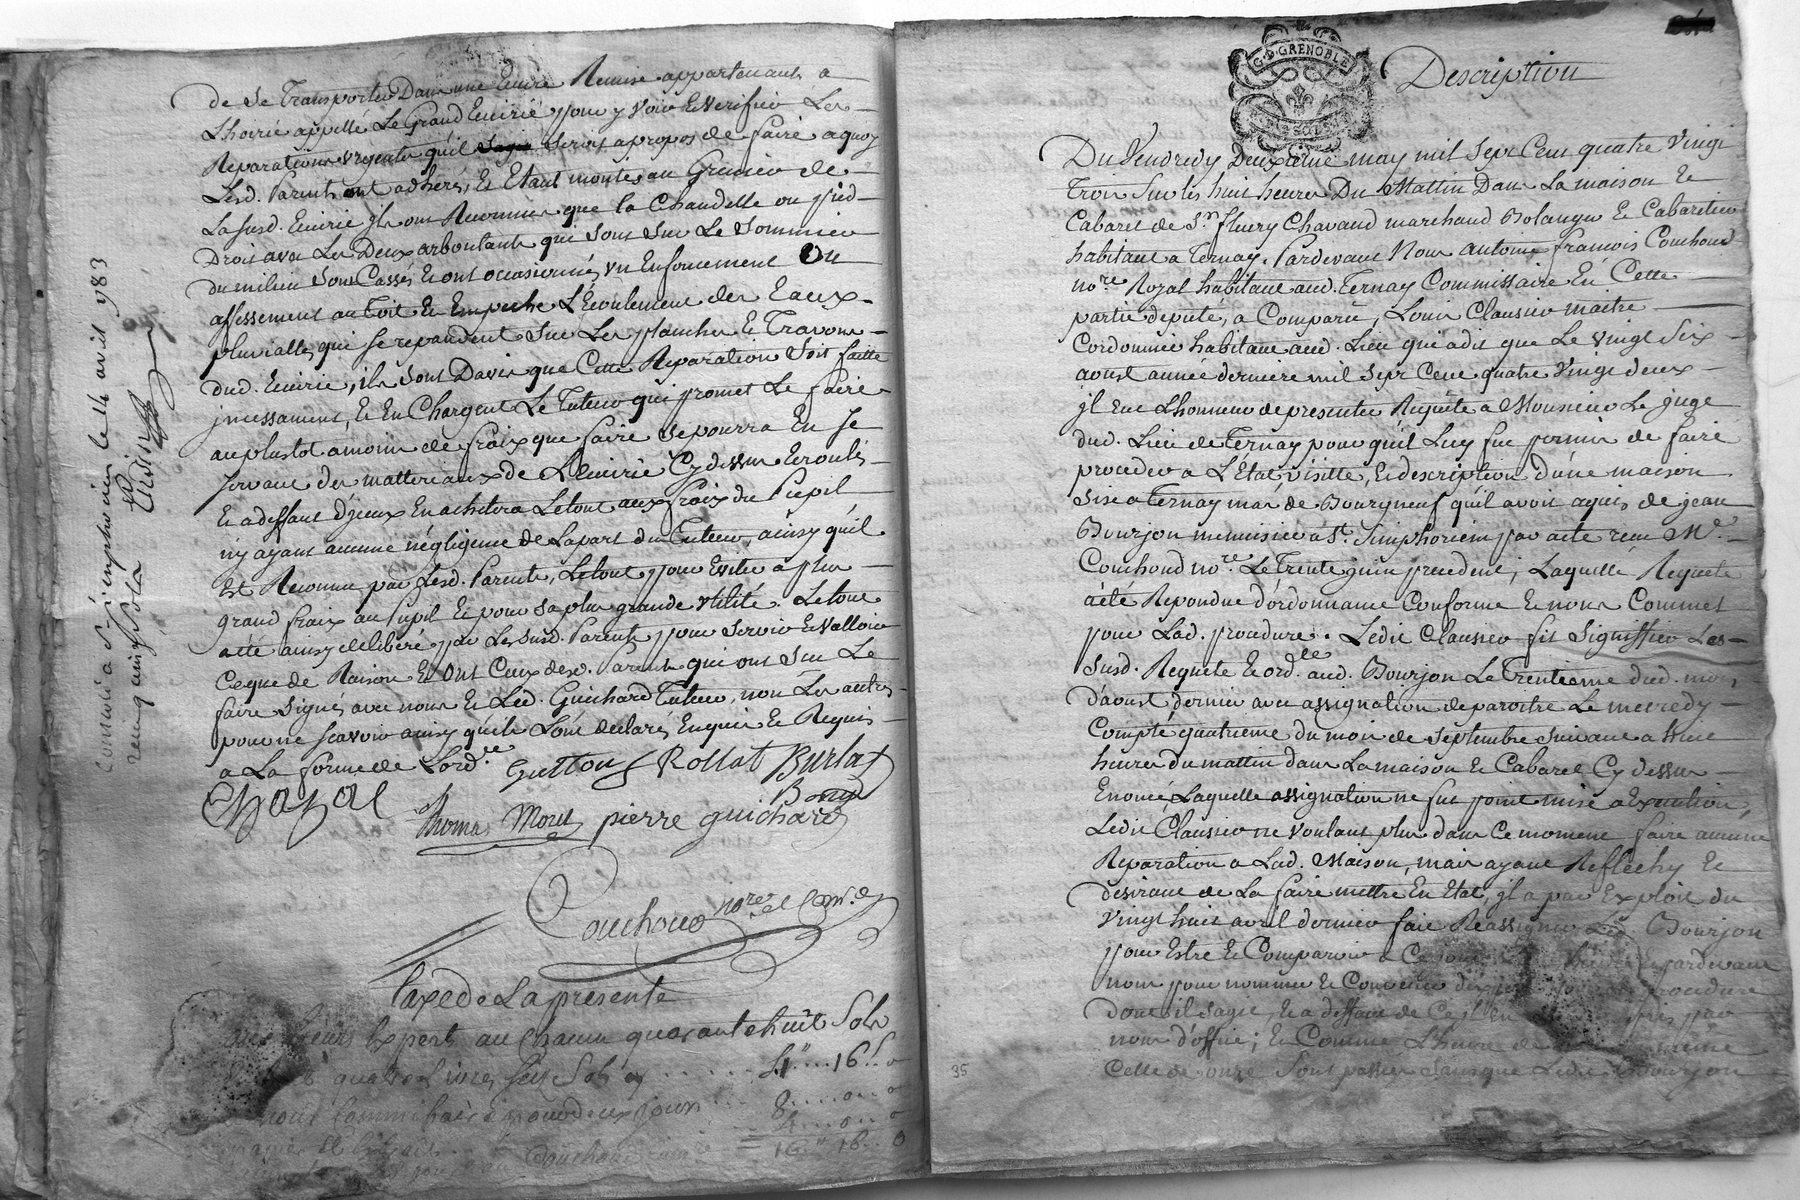 de se transporter Dans une Ecurie Remise appartenant a
Lhoirie appellé Le Grand Ecurié pour y Voir et Verifier Les
Reparations urgentes quil seroit apropos de faire aquoy
Lesd. Parents ont adherés, et Etant montés au Grenier de
La susd. Ecurie jls ont Reconnus que la Chandelle ou pied
Droit avec Les Deux arboutants qui sont sur Le Sommier
du milieu sont Cassés et ont occasionnés un Enfoncement ou
affessement au Toit et Empeche L'Ecoulement des Eaux
pluvialles qui se repandent sur Les planches et Travons
dud. Ecurie, ils sont Davis que Cette Reparation soit faitte
jncessament, et En Chargent Le Tuteur qui promet Le faire
auplustot a moins de fraix que faire se pourra En se
servant des matteriaux de L'Ecurie Cy dessus Ecroulés
Et a deffaut d'jceux En achetera Letout aux fraix du Pupil
n'y ayant aucune négligence de Lapart du Tuteur, ainsy quil
est Reconnu par Lesd. Parents, Letout pour Eviter a plus
grand fraix au Pupil et pour sa plus grande utilité. Letout
a été ainsy deliberé par Les susd. Parents pour servir et Valloir
Ceque de Raison Et Ont Ceux desd. Parents qui ont sçu Le
faire signés avec nous et Led. Guichard Tuteur, non Les autres
pour ne sçavoir ainsy quils L'ont declarés Enquis et Requis
a La forme de Lord.ce
Gutton Rollat Burlat
Chatal Bony
Thomas Moret pierre guichard
Couchoud no.re et Com.re
Taxe de La presente
Expert au Chacun quarante huit Sols
quatre Livres seize Sols cy 4" 16 s. 0
nous Commissaire pour deux jours 8
Controlé a S.t simphorien le avril 1783
reçu quinze sols
G.D. GRENOBLE
Description
Du Vendredy deuxieme may mil sept Cent quatre Vingt
Trois sur les huit heures Du Mattin Dans La maison et
Cabaret de S.r fleury Chavand marchand Bolanger et Cabaretier
habitant a Ternay. Pardevant Nous Antoine francois Couchoud
no.re Royal habitant aud. Ternay Commissaire En Cette
partie deputé, a Comparu, Louis Clausier maitre
Cordonnier habitant aud. Lieu qui a dit que Le vingt six
aoust année derniere mil sept Cent quatre Vingt deux
jl Eut Lhonneur de presenter Requête a Monsieur Le juge
dud. Lieu de Ternay pour quil Luy fut permis de faire
proceder a L'Etat, visitte, et description d'une maison
sise a Ternay mas de Bourgneuf quil avoit aquis de jean
Bourjon menuisier a S.t Simphorien par acte recu M.e
Couchoud no.re Le Trente juin precedent, Laquelle Requete
a été Repondue d'ordonnance Conforme et nous Commet
pour Lad. procedure. Ledit Clausier fit signiffier Les
susd. Requete et ord.ce aud. Bourjon Le Trentieme dud. mois
d'aoust dernier avec assignation de paroitre Le mecredy
Compté quatrieme du mois de septembre suivant a huit
heures du mattin dans La maison et Cabaret Cy dessus
Enoncé, Laquelle assignation ne fut point mise a Execution
Ledit Clausier ne voulant plus dans Ce moment faire aucune
Reparation a Lad. Maison, mais ayant Reflechy et
desirant de La faire mettre En Etat, jl a par Exploit du
vingt huit avril dernier fait Reassigner Led. Bourjon
pour Estre et Comparoir a Ce jour pardevant
nous pour nommer et Convenir d'Expert procedure
dont il sagit, Et a deffaut de Ce jl En par
nous d'office; et Comme L'heure de
Celle de onze sont passées sans que Ledit Bourjon
35